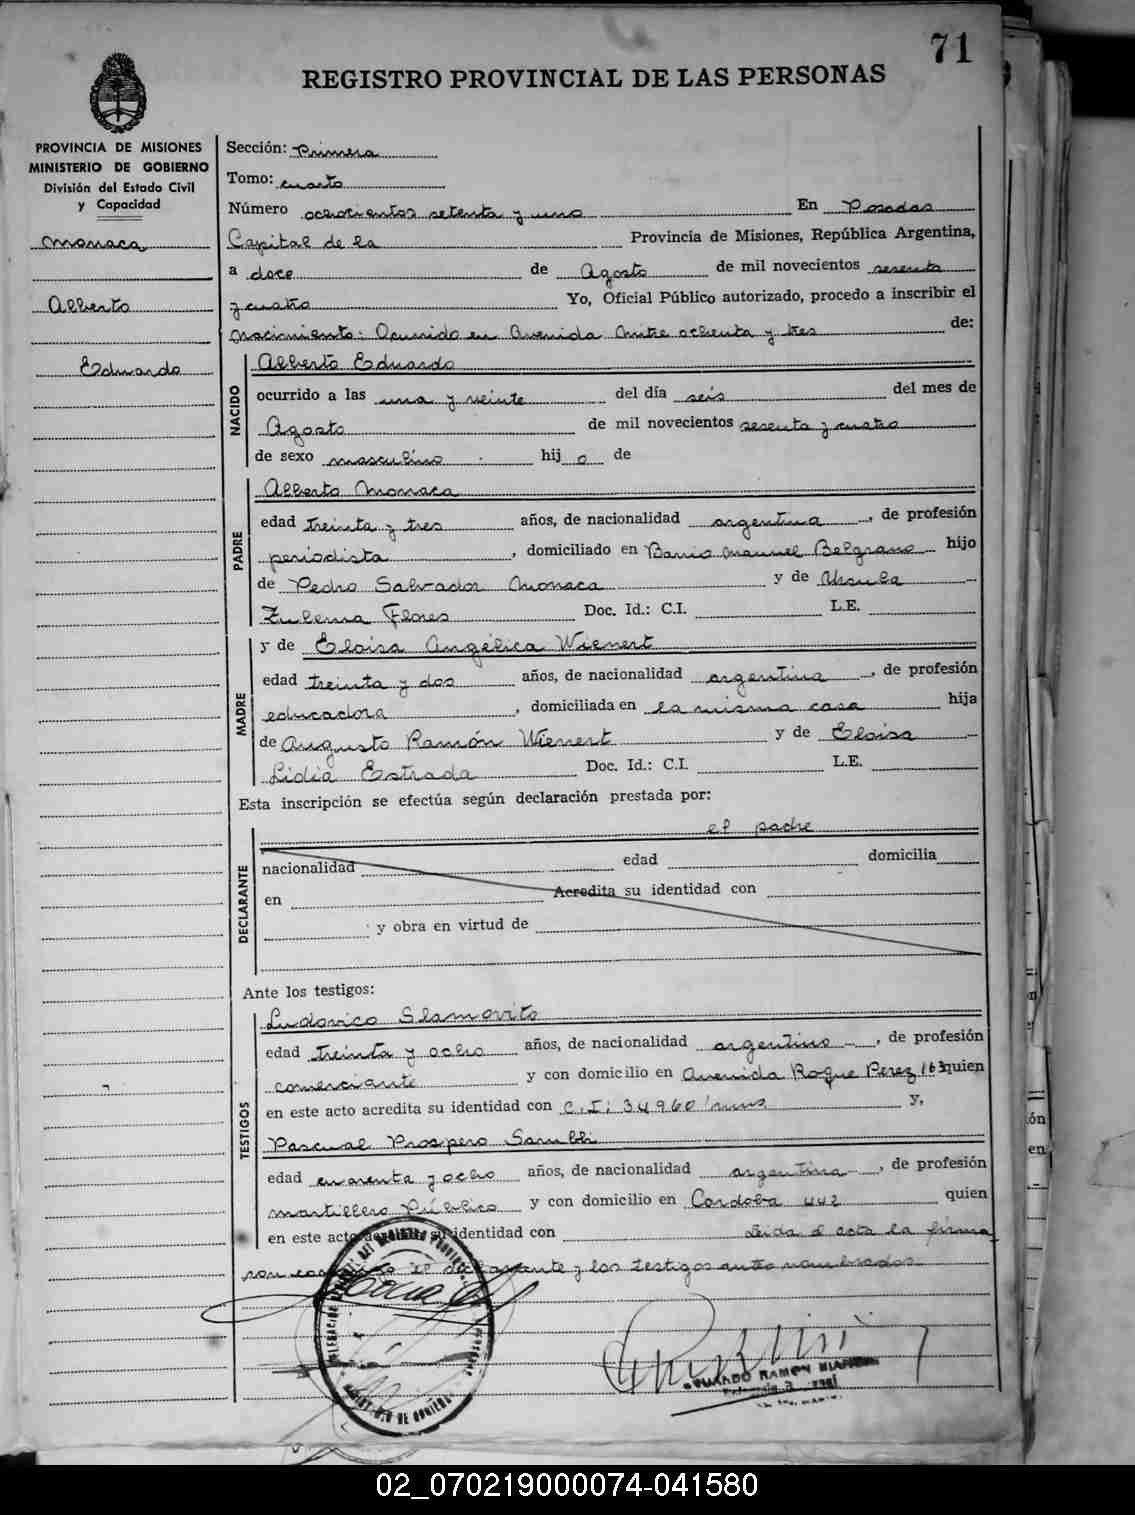 71
REGISTRO PROVINCIAL DE LAS PERSONAS
PROVINCIA DE MISIONES
MINISTERIO DE GOBIERNO
División del Estado Civil
y Capacidad
Monaca
Alberto
Eduardo
Sección: Primera
Tomo: cuarto
Número ochocientos setenta y uno En Posadas
Capital de la Provincia de Misiones, República Argentina,
a doce de Agosto de mil novecientos sesenta
y cuatro Yo, Oficial Público autorizado, procedo a inscribir el
nacimiento: Ocurrido en Avenida Mitre ochenta y tres de:
NACIDO
Alberto Eduardo
ocurrido a las una y veinte del día seis del mes de
Agosto de mil novecientos sesenta y cuatro
de sexo masculino hij o de
PADRE
Alberto Monaca
edad treinta y tres años, de nacionalidad argentina, de profesión
periodista, domiciliado en Barrio Manuel Belgrano hijo
de Pedro Salvador Monaca y de Ursula
Zulema Flores Doc. Id.: C.I. L.E.
MADRE
y de Eloisa Angélica Wienert
edad treinta y dos años, de nacionalidad argentina, de profesión
educadora, domiciliada en la misma casa hija
de Augusto Ramón Wienert y de Eloisa
Lidia Estrada Doc. Id.: C.I. L.E.
Esta inscripción se efectúa según declaración prestada por:
DECLARANTE
el padre
nacionalidad edad domicilia
en Acredita su identidad con
y obra en virtud de
Ante los testigos:
TESTIGOS
Ludovico Slamovits
edad treinta y ocho años, de nacionalidad argentino, de profesión
comerciante y con domicilio en Avenida Roque Perez 163 quien
en este acto acredita su identidad con C.I: 34960 y,
Pascual Prospero Sambli
edad cuarenta y ocho años, de nacionalidad argentina, de profesión
martillero Público y con domicilio en Cordoba 442 quien
en este acto su identidad con Leida el acta la firma
el declarante y los testigos antes nombrados
EDUARDO RAMON
02_070219000074-041580